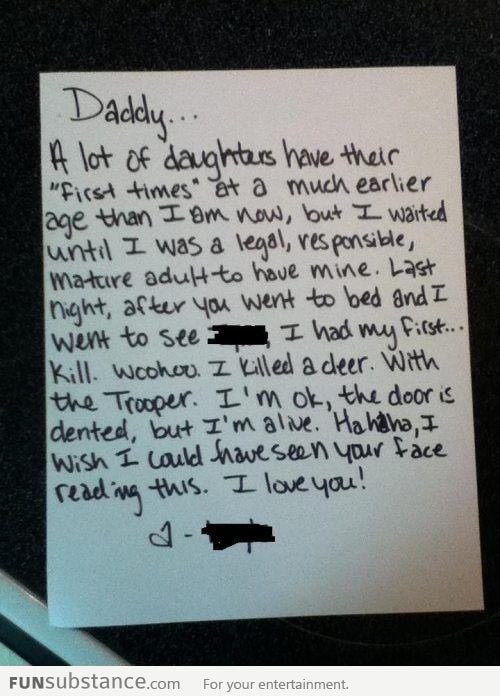 Daddy...
A lot of daughters have their
"first times" at a much earlier
age than I am now, but I waited
until I was a legal, responsible,
mature adult to have mine. Last
night, after you went to bed and I
went to see I had my first...
kill. Woohoo. I killed a deer. With
the Trooper. I'm ok, the door is
dented, but I'm alive. Hahaha, I
wish I could have seen your face
reading this. I love you!
-
FUNSUBSTANCE.com For your entertainment.